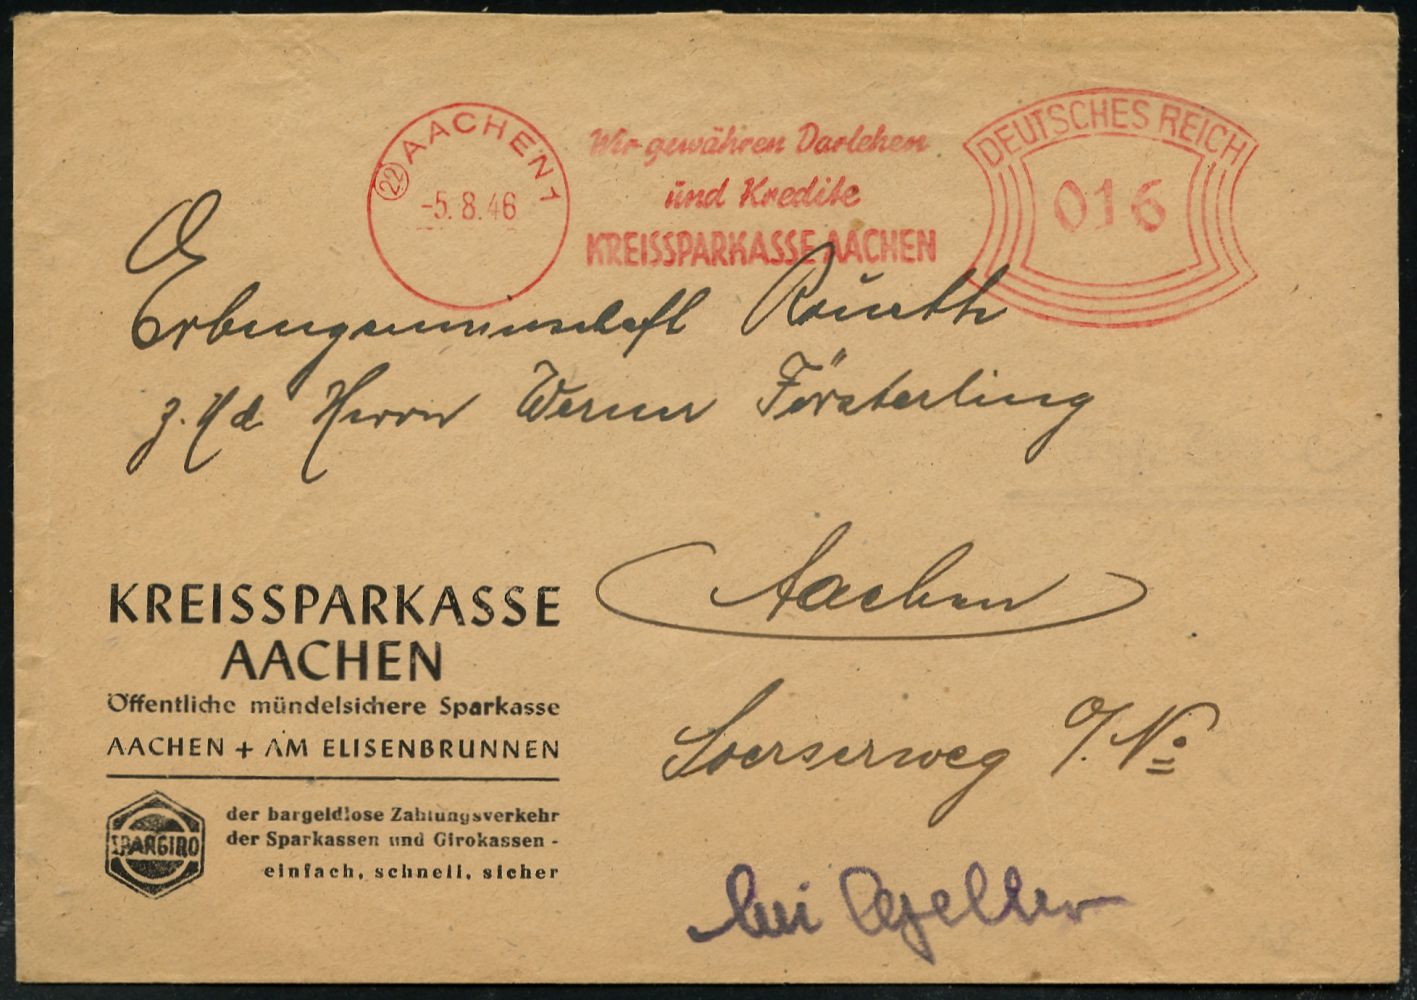 AACHEN 1
22
-5.8.46
Wir gewähren Darlehen
und Kredite
KREISSPARKASSE AACHEN
DEUTSCHES REICH
016
Erbengemeinschaft
z. Hd. Herrn Werner Försterling
Aachen
Soerserweg o/No
KREISSPARKASSE
AACHEN
Öffentliche mündelsichere Sparkasse
AACHEN + AM ELISENBRUNNEN
SPARGIRO
der bargeldlose Zahlungsverkehr
der Sparkassen und Girokassen -
einfach, schnell, sicher
bei